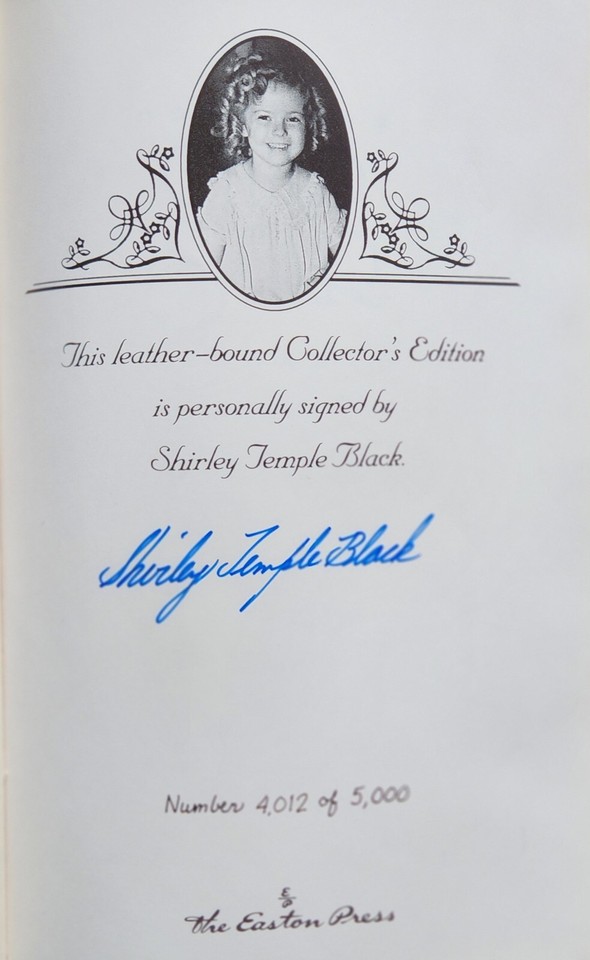 This leather-bound Collector's Edition
is personally signed by
Shirley Temple Black.
Shirley Temple Black
Number 4,012 of 5,000
EP
The Easton Press